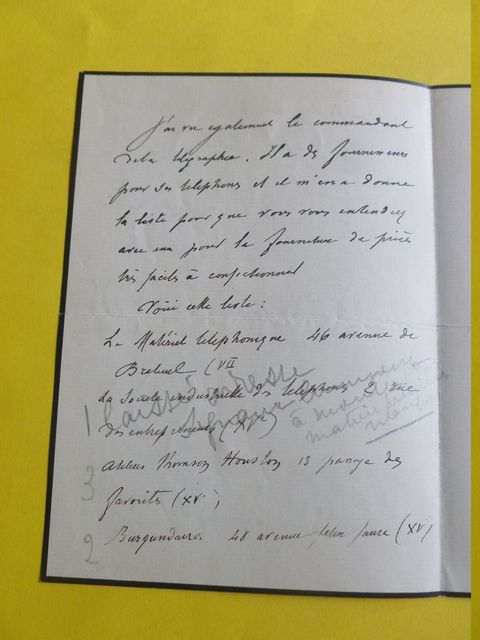 J'ai vu egalement le commandant
de la telegraphie. Il a des fournisseurs
pour ses telephones et il m'en a donne
la liste pour que vous vous entendiez
avec eux pour la fourniture de pièces
très faciles à confectionner
Voici cette liste :
Le Matériel telephonique 46 avenue de
Breteuil (VII
La Societe industrielle des telephones 2 rue
des entrepreneurs (XVe)
1 laissé adresse
à
Ateliers Thomson Houston 13 passage des
3
favorites (XVe)
2
Burgundaires 48 avenue felix faure (XV)